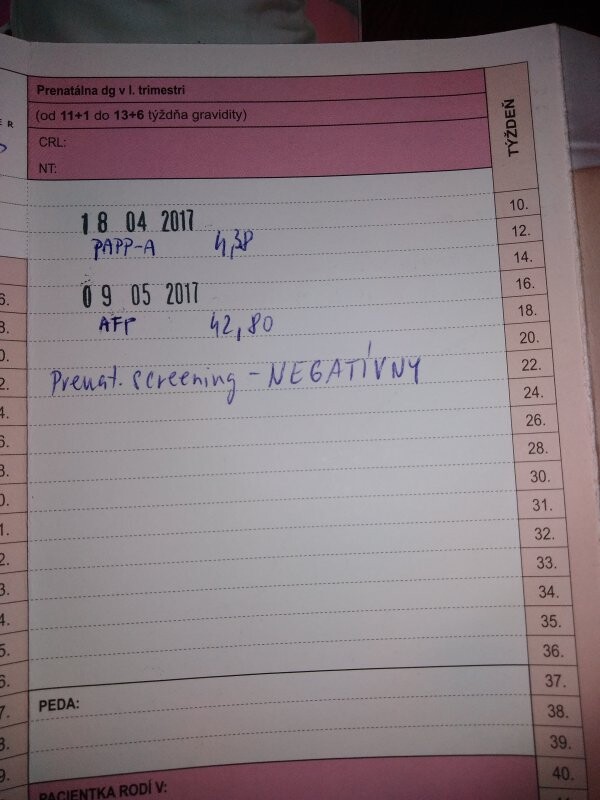 Prenatálna dg v I. trimestri
(od 11+1 do 13+6 týždňa gravidity)
CRL:
NT:
TÝŽDEŇ
10.
18 04 2017
12.
PAPP-A 4,38
14.
16.
09 05 2017
18.
AFP 42,80
20.
22.
Prenat. screening - NEGATÍVNY
24.
26.
28.
30.
31.
32.
33.
34.
35.
36.
37.
PEDA:
38.
39.
40.
PACIENTKA RODÍ V: